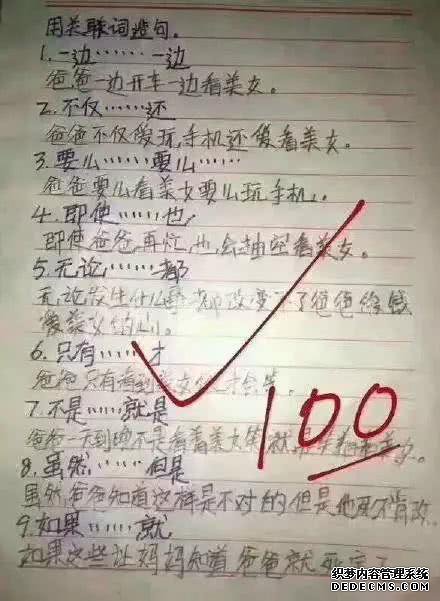 用关联词造句.
1.一边……一边
爸爸一边开车一边看美女。
2.不仅……还
爸爸不仅爱玩手机还爱看美女。
3.要么……要么……
爸爸要么看美女要么玩手机.
4.即使……也
即使爸爸再忙,也会抽空看美女。
5.无论……都
无论发生什么事都改变不了爸爸
爱美女的心。
6.只有……才
爸爸只有看到美女 才会笑.
7.不是……就是
爸爸一天到晚不是看着美女笑就是 美女。
8.虽然……但是
虽然爸爸知道这样是不对的,但是他死不肯改.
9.如果……就
如果这些让妈妈知道爸爸就死定了
100
织梦内容管理系统
DEDECMS.COM